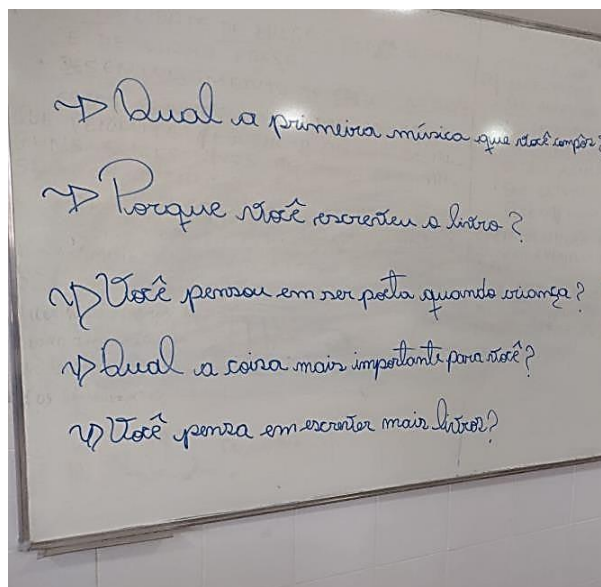 → Qual a primeira música que você compôs?
→ Porque você escreveu o livro?
→ Você pensou em ser poeta quando criança?
→ Qual a coisa mais importante para você?
→ Você pensa em escrever mais livros?